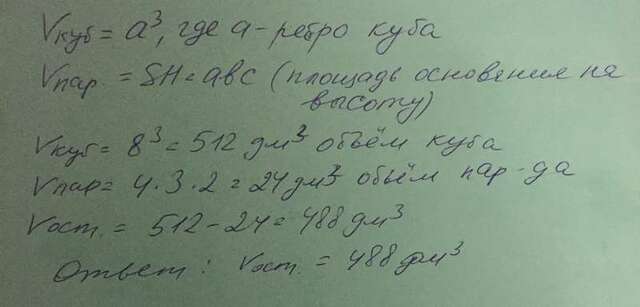 Vкуб = a³, где a - ребро куба
Vпар = SH = abc (площадь основения на
высоту)
Vкуб = 8³ = 512 дм³ объём куба
Vпар = 4 · 3 · 2 = 24 дм³ объём пар-да
Vост. = 512 - 24 = 488 дм³
Ответ: Vост. = 488 дм³